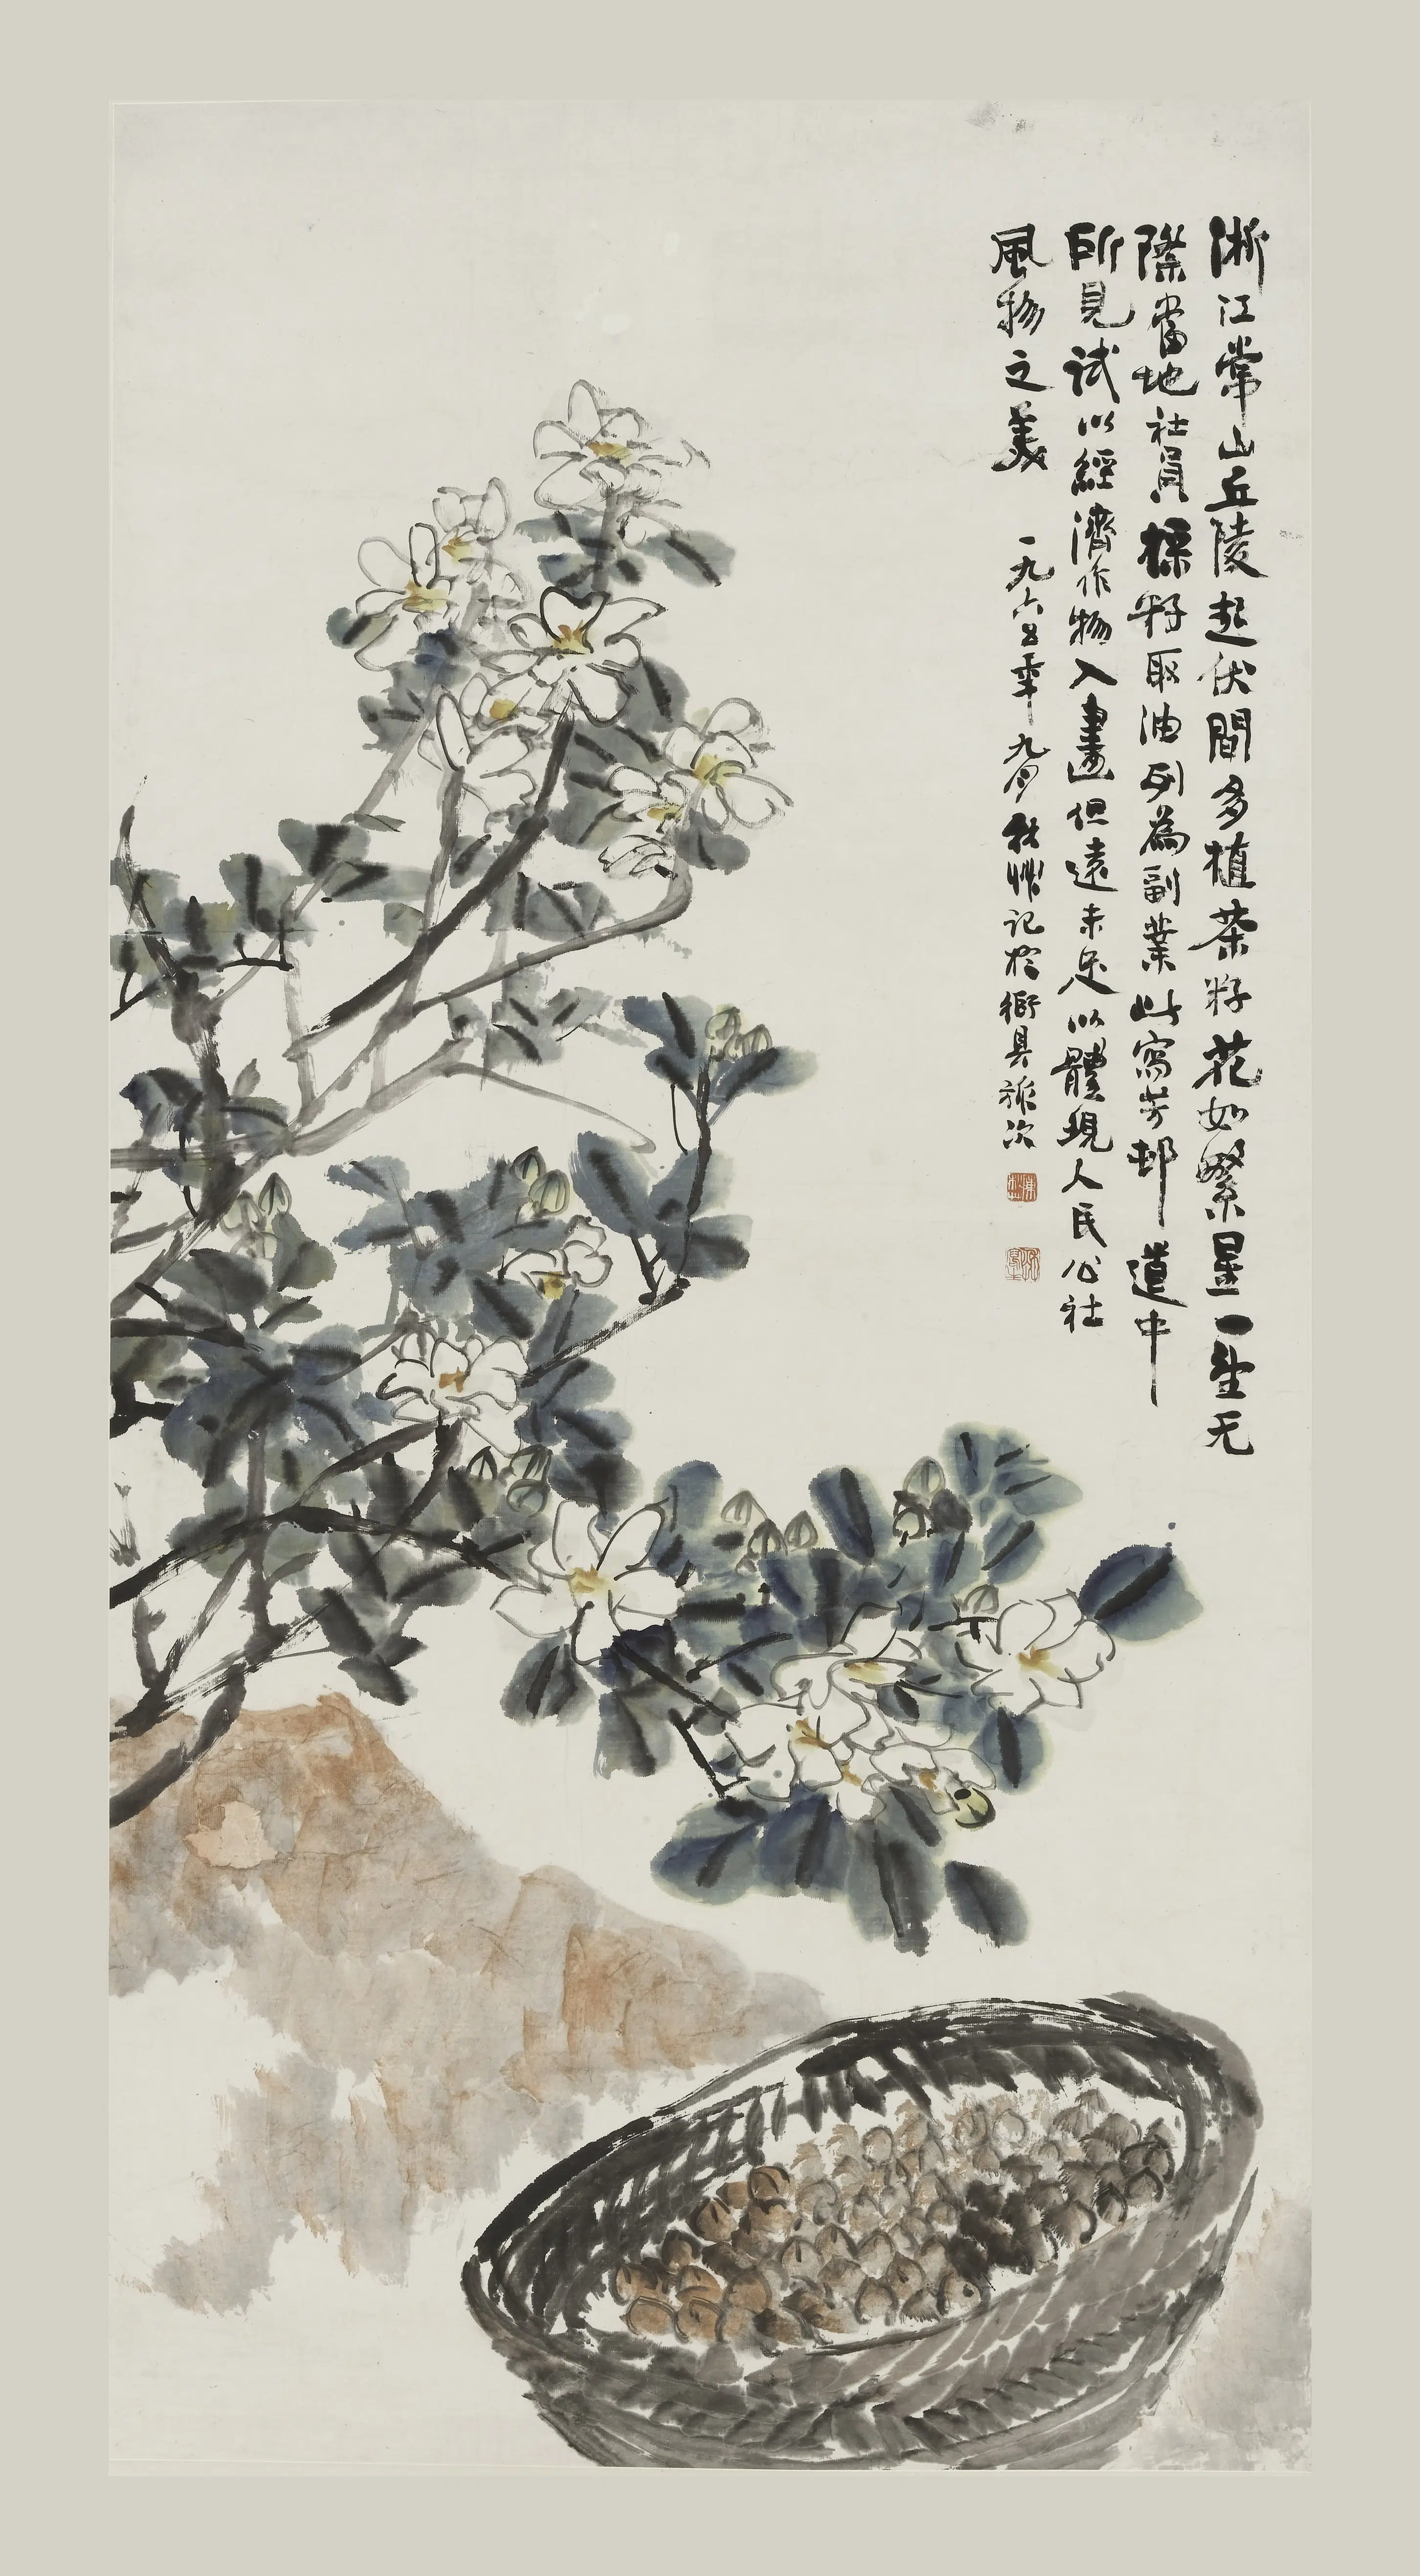 浙江常山丘陵起伏間多植茶籽花如繁星一望无
際當地社員採籽取油列為副業此寫芳邨道中
所見試以經濟作物入畫但遠未足以體現人民公社
風物之美
一九六五年九月 秋艸記於衢具旅次